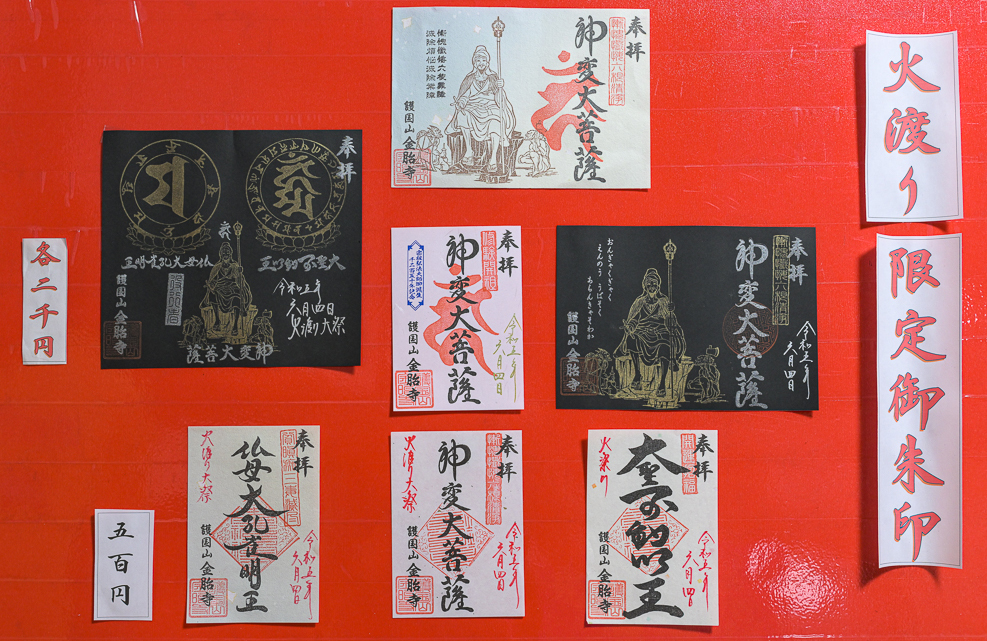 火渡り
限定御朱印
奉拝
神変大菩薩
護国山 金胎寺
奉拝
大聖不動明王
仏母大孔雀明王
神変大菩薩
令和五年
六月四日
火渡り大祭
護国山 金胎寺
各二千円
奉拝
神変大菩薩
令和五年
六月四日
護国山 金胎寺
奉拝
神変大菩薩
おんぎゃくぎゃく
えんのう うばそく
あらんきゃそわか
令和五年
六月四日
護国山 金胎寺
奉拝
仏母大孔雀明王
火渡り大祭
令和五年
六月四日
護国山 金胎寺
奉拝
神変大菩薩
火渡り大祭
令和五年
六月四日
護国山 金胎寺
奉拝
大聖不動明王
火渡り
令和五年
六月四日
護国山 金胎寺
五百円